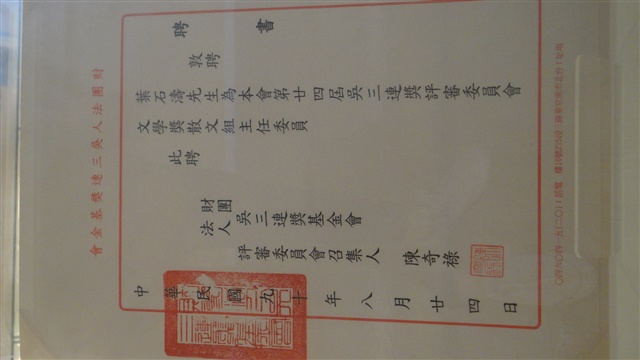 財團法人吳三連獎基金會
聘書
敦聘
葉石濤先生為本會第廿四屆吳三連獎評審委員會
文學獎散文組主任委員
此聘
財團
法人
吳三連獎基金會
評審委員會召集人
陳奇祿
中華民國九十年八月廿四日